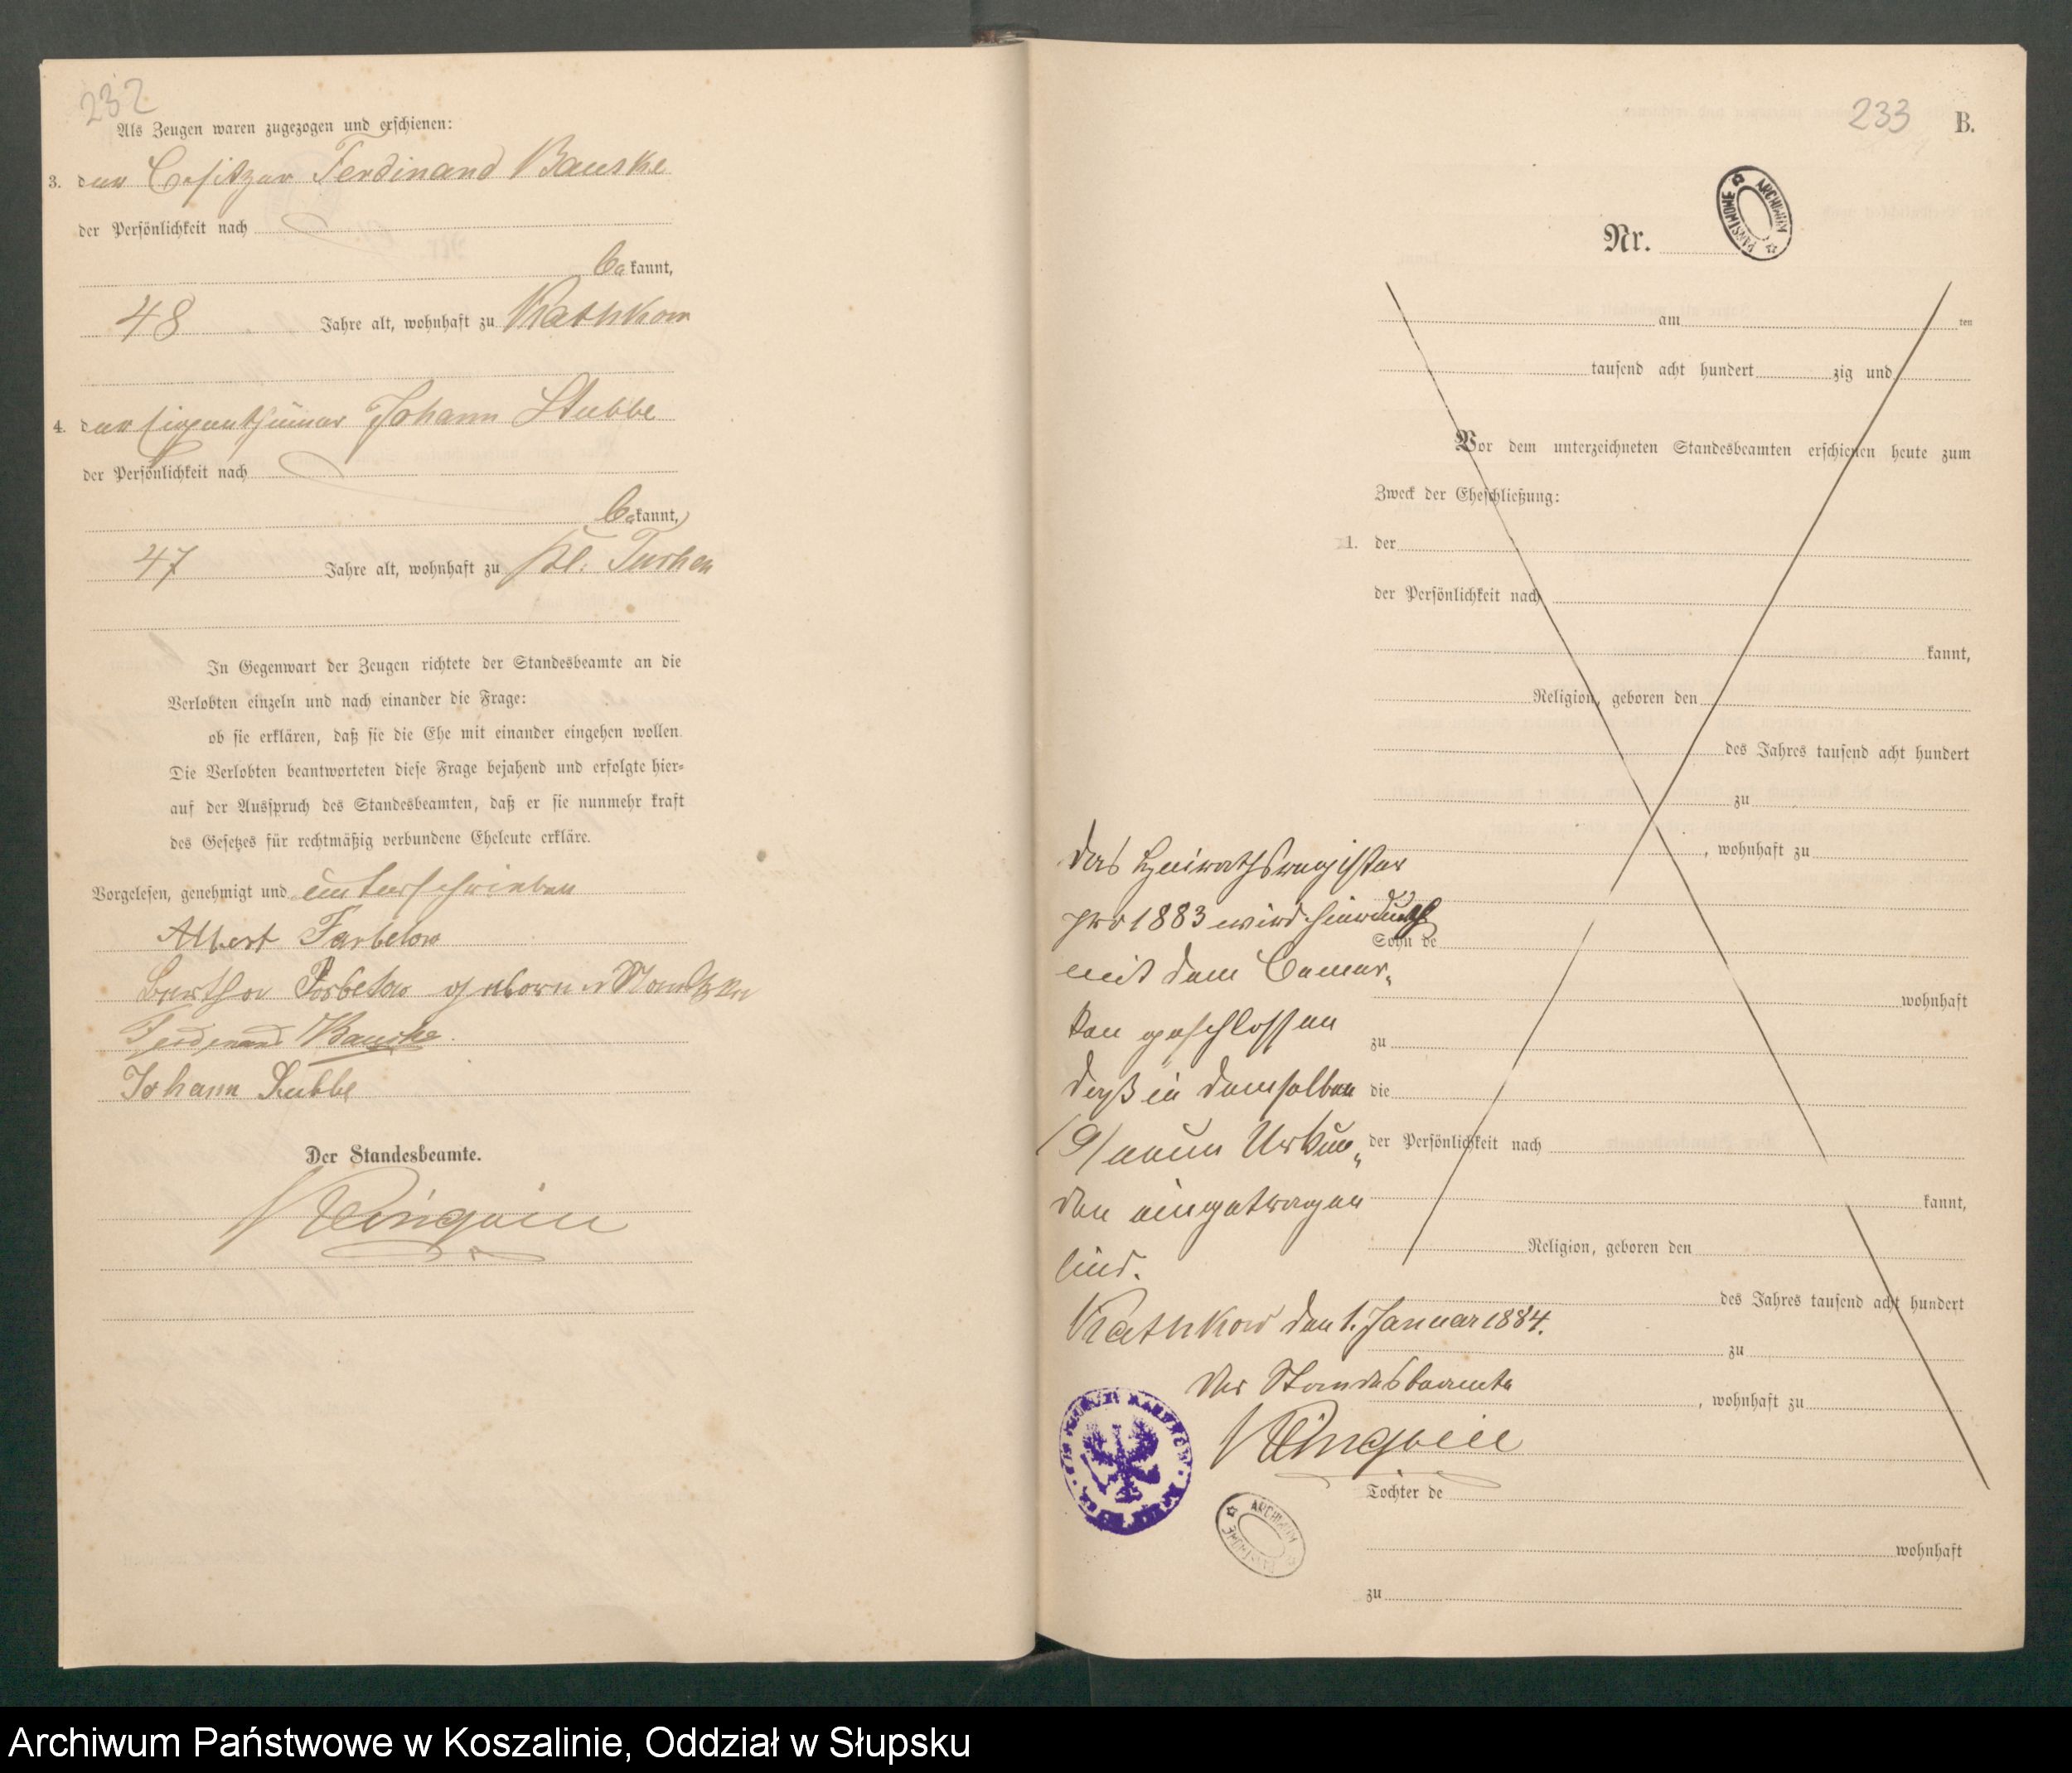 232
Als Zeugen waren zugezogen und erschienen:
3. der Besitzer Ferdinand Bauske
der Persönlichkeit nach
bekannt,
48 Jahre alt, wohnhaft zu Rathkow
4. der Eigenthümer Johann Stubbe
der Persönlichkeit nach
bekannt,
47 Jahre alt, wohnhaft zu Kl. Tuchen
In Gegenwart der Zeugen richtete der Standesbeamte an die
Verlobten einzeln und nach einander die Frage:
ob sie erklären, daß sie die Ehe mit einander eingehen wollen.
Die Verlobten beantworteten diese Frage bejahend und erfolgte hier=
auf der Ausspruch des Standesbeamten, daß er sie nunmehr kraft
des Gesetzes für rechtmäßig verbundene Eheleute erkläre.
Vorgelesen, genehmigt und unterschrieben
Albert
Bertha geborne
Ferdinand Bauske
Johann Stubbe
Der Standesbeamte.
233 B.
Nr.
ARCHIWUM PAŃSTWOWE
am ten
tausend acht hundert zig und
Vor dem unterzeichneten Standesbeamten erschienen heute zum
Zweck der Eheschließung:
1. der
der Persönlichkeit nach
kannt,
Religion, geboren den
des Jahres tausend acht hundert
zu
, wohnhaft zu
Sohn de
wohnhaft
zu
die
der Persönlichkeit nach
kannt,
Religion, geboren den
des Jahres tausend acht hundert
zu
, wohnhaft zu
Tochter de
wohnhaft
zu
Das Heirathsregister
pro 1883 wird hierdurch
mit dem Bemer„
ken geschlossen
daß in demselben
/9/ neun Urkun„
den eingetragen
sind.
Rathkow den 1. Januar 1884.
Der Standesbeamte
ARCHIWUM PAŃSTWOWE
Archiwum Państwowe w Koszalinie, Oddział w Słupsku